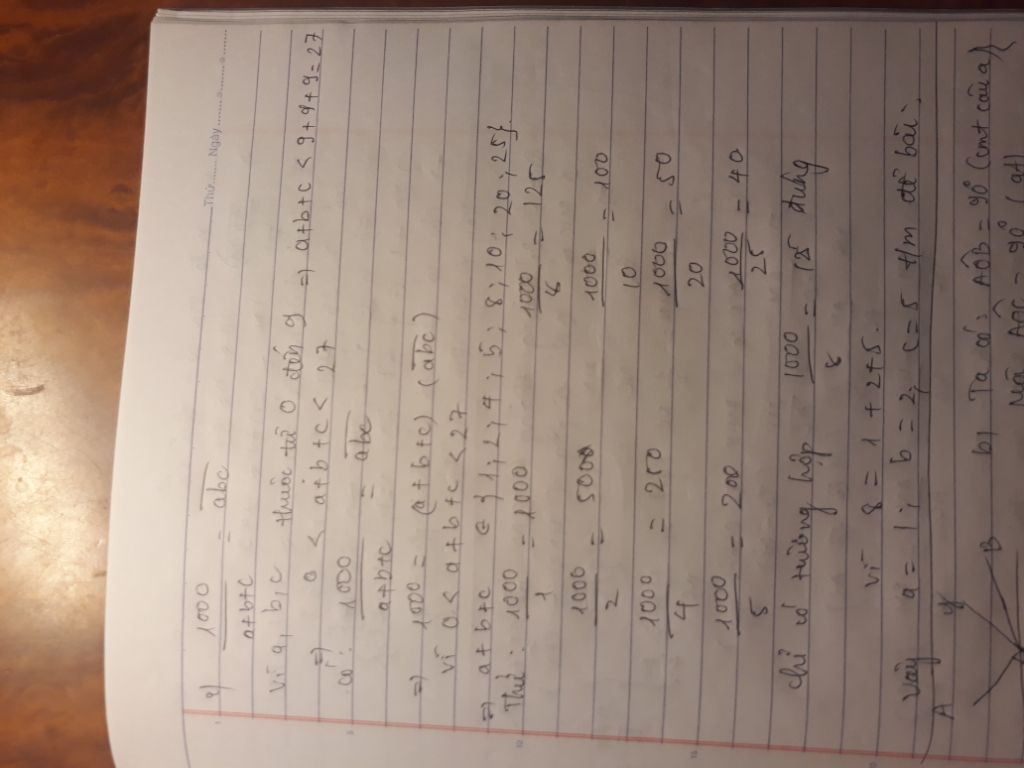 Thứ........ Ngày
9) 1000 / a+b+c = abc
Vì a, b, c thuộc từ 0 đến 9 => a+b+c < 9+9+9=27
=> 0 < a+b+c < 27
có: 1000 / a+b+c = abc
=> 1000 = (a+b+c) (abc)
vì 0 < a+b+c < 27
=> a+b+c ∈ {1, 2, 4; 5; 8; 10; 20; 25}.
Thử: 1000 / 1 = 1000 1000 / 8 = 125
1000 / 2 = 5000 1000 / 10 = 100
1000 / 4 = 250 1000 / 20 = 50
1000 / 5 = 200 1000 / 25 = 40
chỉ có trường hợp 1000 / 8 = đúng
vì 8 = 1 + 2+5.
vậy a = 1; b = 2; c = 5 t/m đề bài.
A y B b) Ta có: AOB = 90° (cmt câu a)
Mà AOC = 90° (gt)